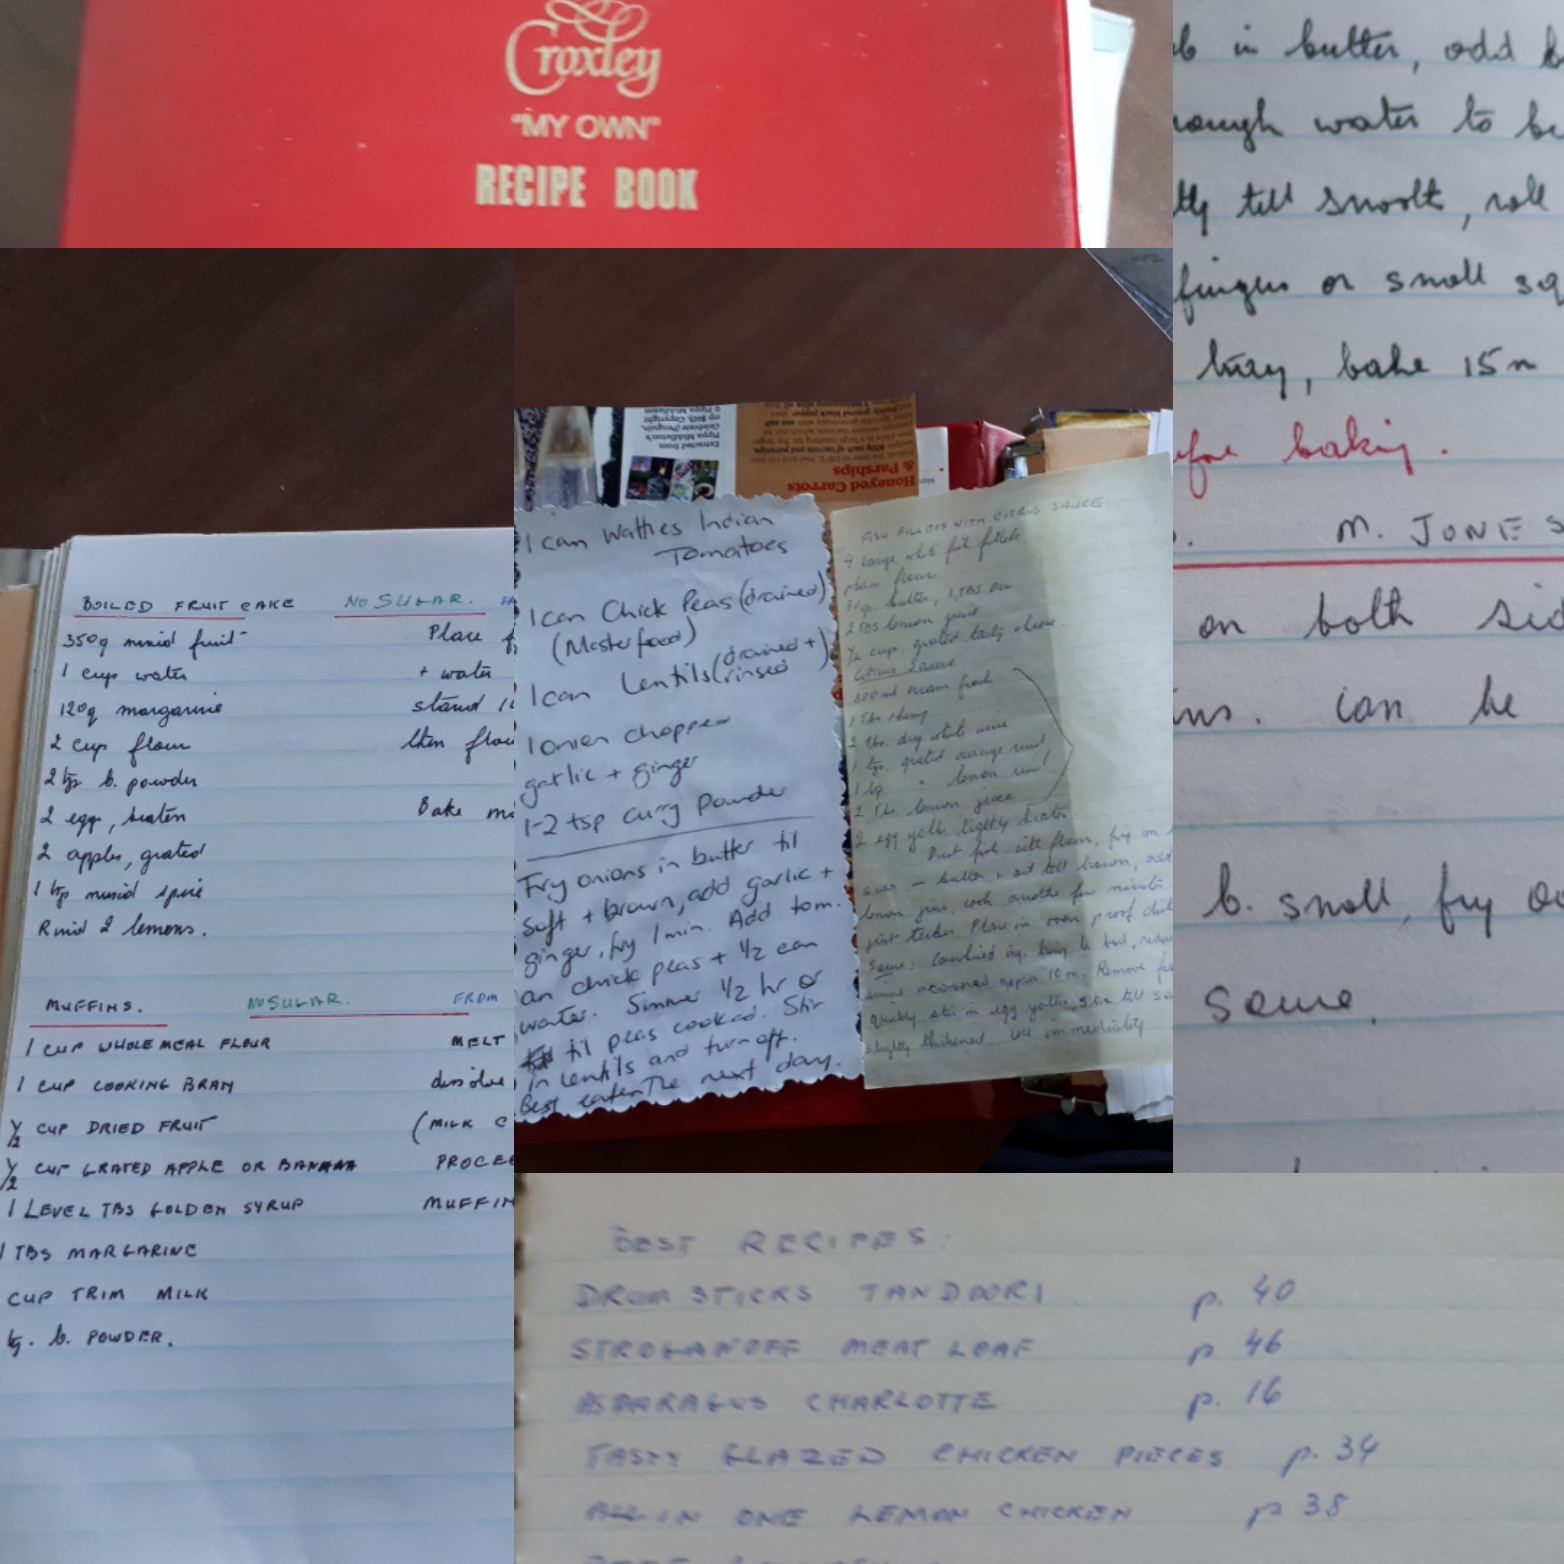 Croxley
"MY OWN"
RECIPE BOOK
BOILED FRUIT CAKE NO SUGAR.
350g mixed fruit Place
1 cup water + water
120g margarine stand
2 cup flour then flou
2 tsp b. powder
2 egg, beaten Bake
2 apples, grated
1 tsp mixed spice
Rind 2 lemons.
MUFFINS. NO SUGAR. FROM
1 CUP WHOLEMEAL FLOUR MELT
1 CUP COOKING BRAN dissolve
1/2 CUP DRIED FRUIT (MILK
1/2 CUP GRATED APPLE OR BANANA PROCEE
1 LEVEL TBS GOLDEN SYRUP MUFFIN
1 TBS MARGARINE
CUP TRIM MILK
b. POWDER.
Extracted from
Pippa Middleton's
Celebrate (Penguin,
Copyright
© Pippa Middleton
Honeyed Carrots
& Parsnips
1 can Watties Indian
Tomatoes
1 can Chick Peas (drained)
(Masterfood)
1 can Lentils (drained +
rinsed)
1 onion chopped
garlic + ginger
1-2 tsp curry powder
Fry onions in butter til
soft + brown, add garlic +
ginger, fry 1 min. Add tom.
an chick peas + 1/2 can
water. Simmer 1/2 hr or
til peas cooked. Stir
in lentils and turn off.
Best eaten the next day.
FISH FILLETS WITH CITRUS SAUCE
4 large white fish fillets
plain flour
30g. butter, 1 TBS
2 TBS lemon juice
1/2 cup grated tasty cheese
Citrus Sauce
300ml cream fresh
1 Tbs sherry
2 Tbs. dry white wine
1 tsp. grated orange rind
1 tsp " lemon rind
2 Tbs. lemon juice
2 egg yolks lightly beaten.
Dust fish with flour, fry on
in butter + oil till brown, add
lemon juice, cook another few minutes
just tender. Place in oven proof dish
Sauce: Combined ing. bring to boil, reduce
simmer uncovered approx 10m. Remove
quickly stir in egg yolks, stir till
slightly thickened. Use immediately
b in butter, add
nough water to
tly till smooth, roll
fingers or small sq
tray, bake 15m
efore baking.
M. JONES
on both sid
ins. can be
b. small, fry
same.
BEST RECIPES:
DRUMSTICKS TANDOORI p. 40
STROGANOFF MEAT LOAF p 46
ASPARAGUS CHARLOTTE p. 16
TASTY GLAZED CHICKEN PIECES p. 34
ALL IN ONE LEMON CHICKEN p 38